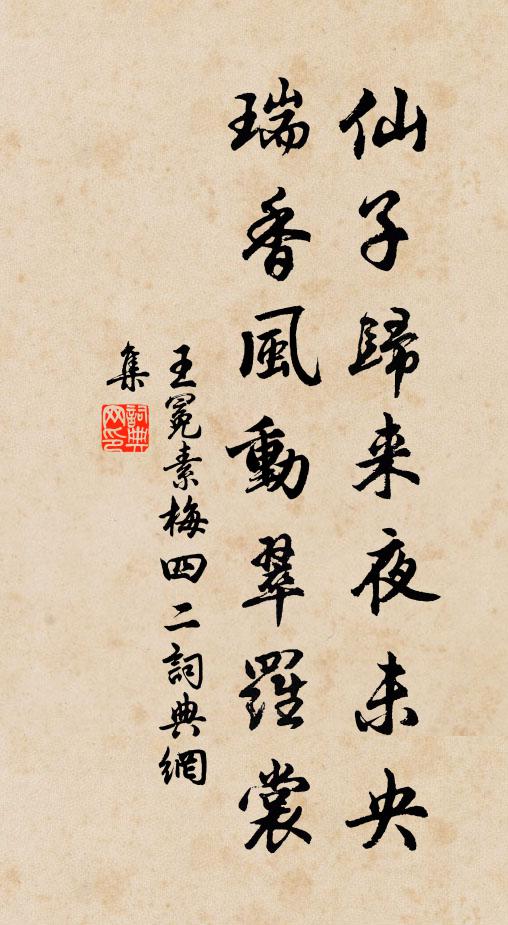 仙子歸来夜未央
瑞香風動翠羅裳
王冕素梅四二詞典網
集
詞典
网印